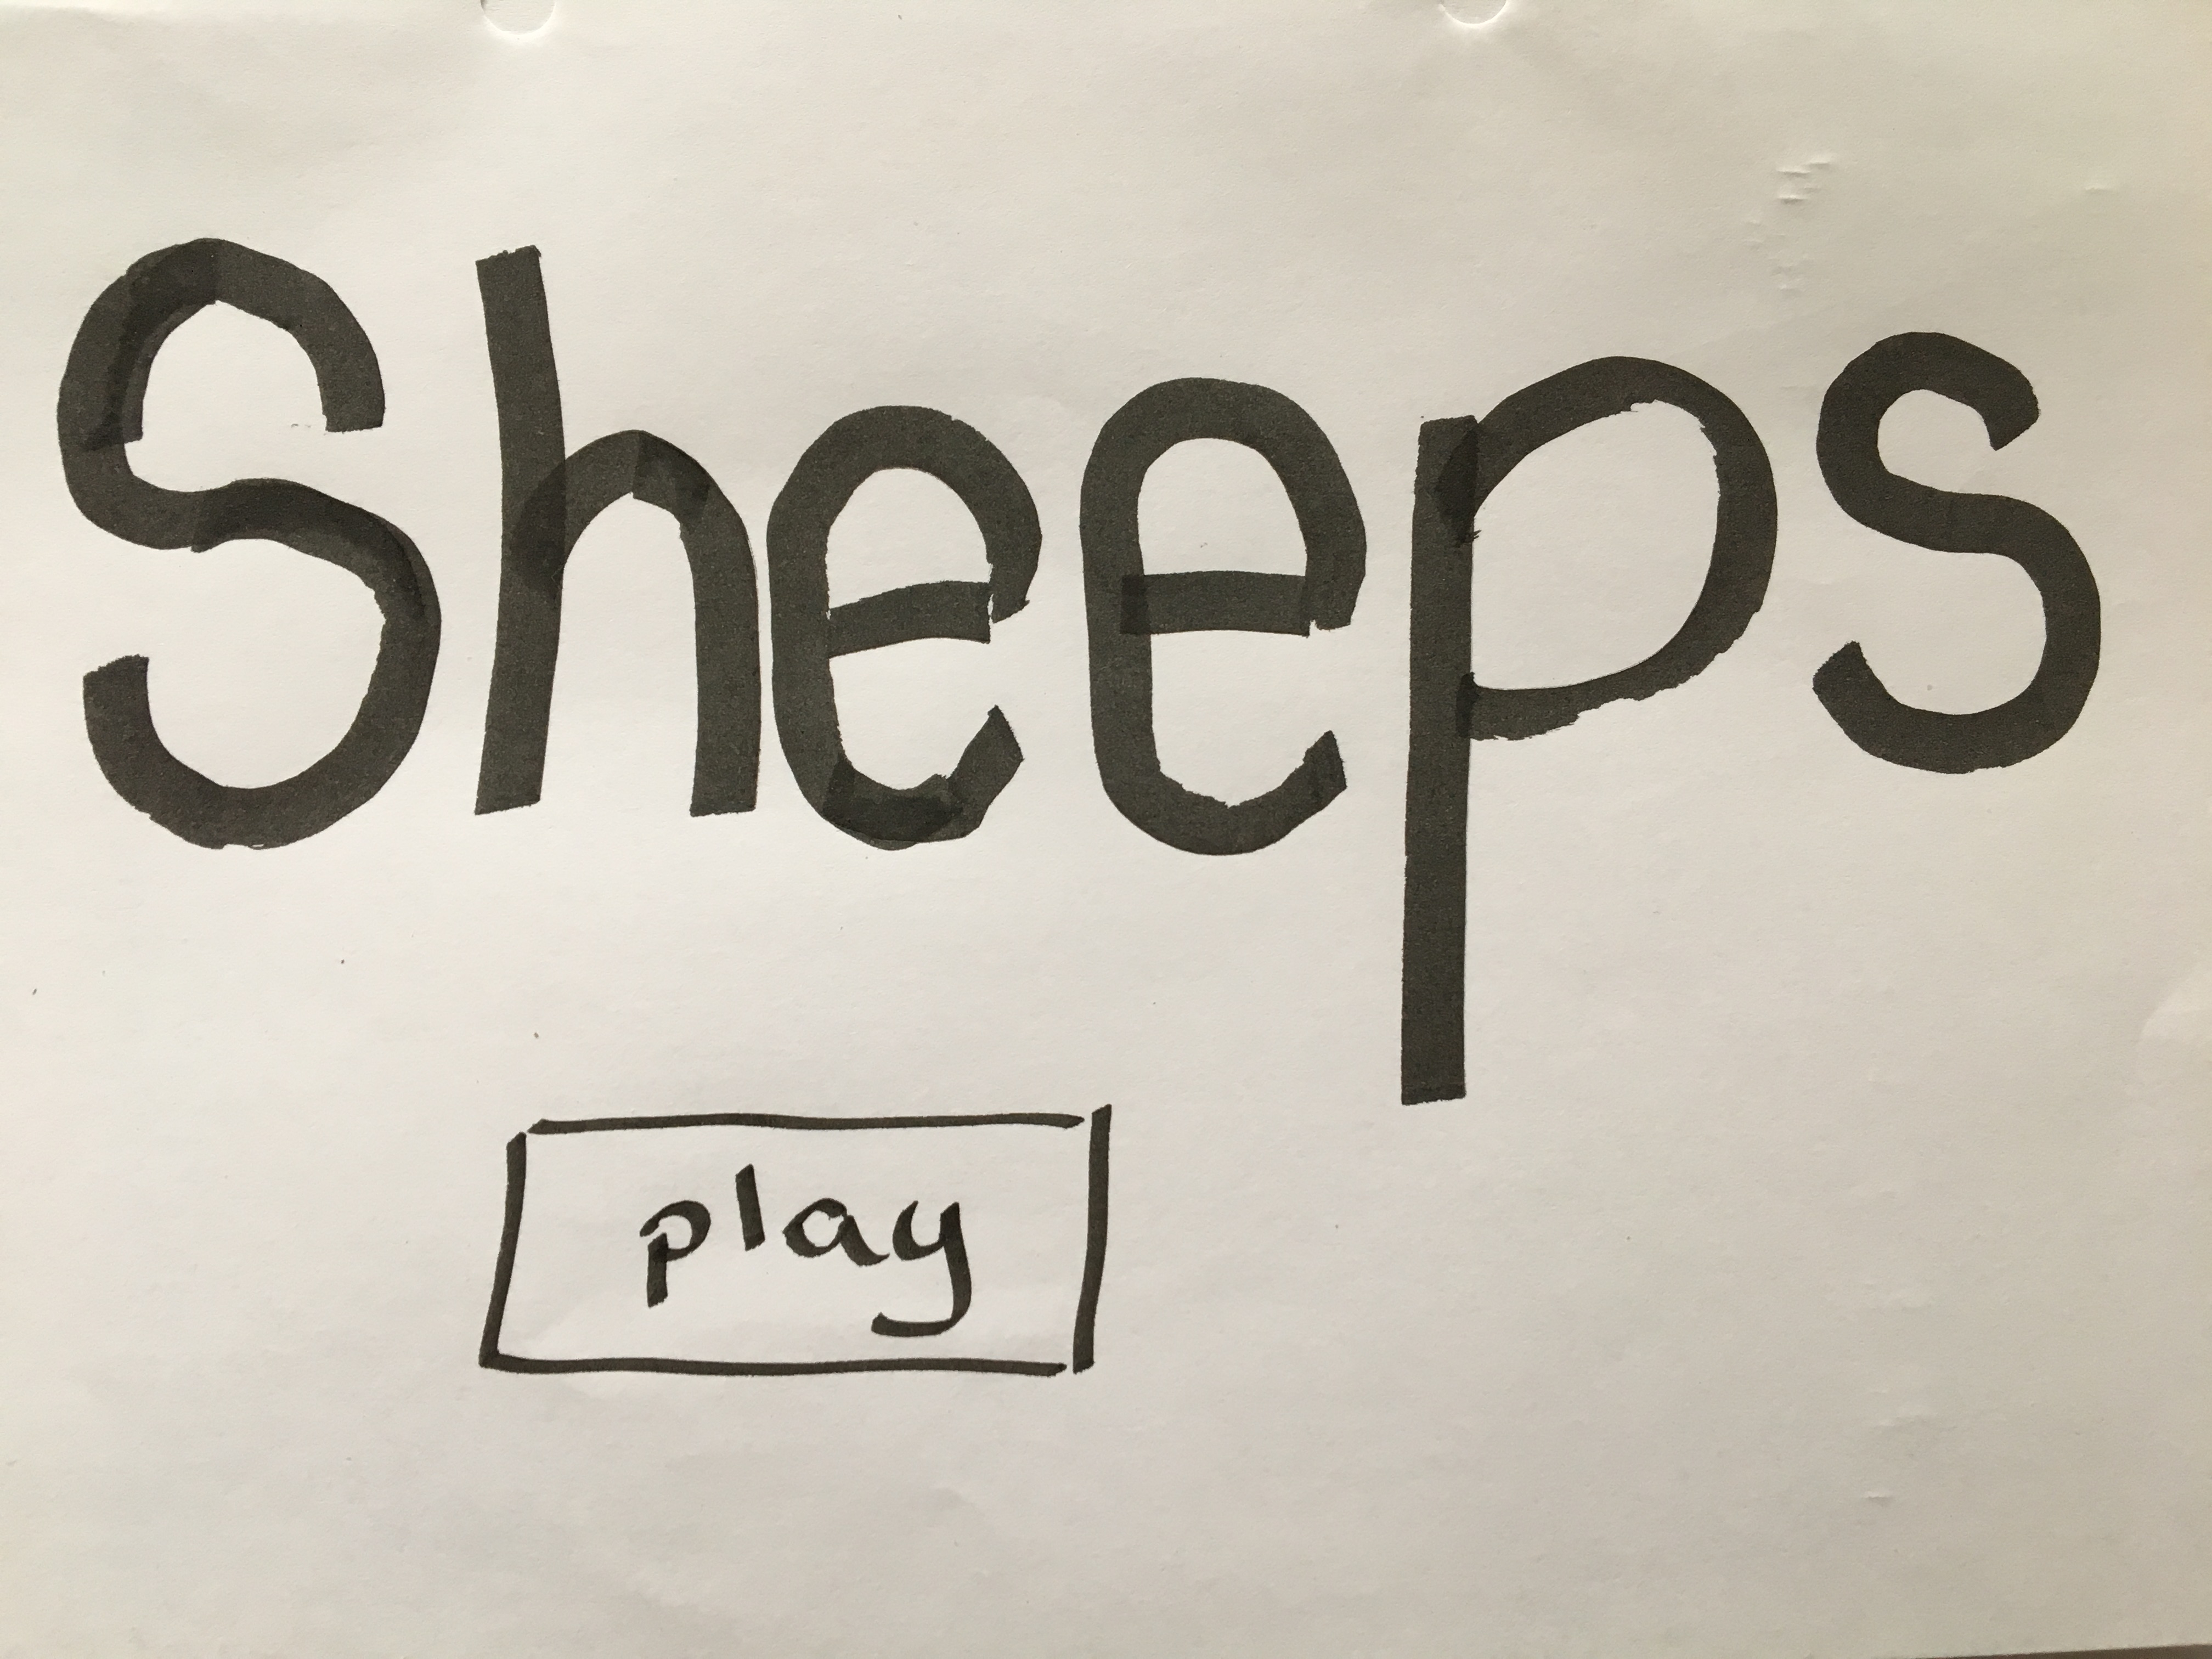 Sheeps
play